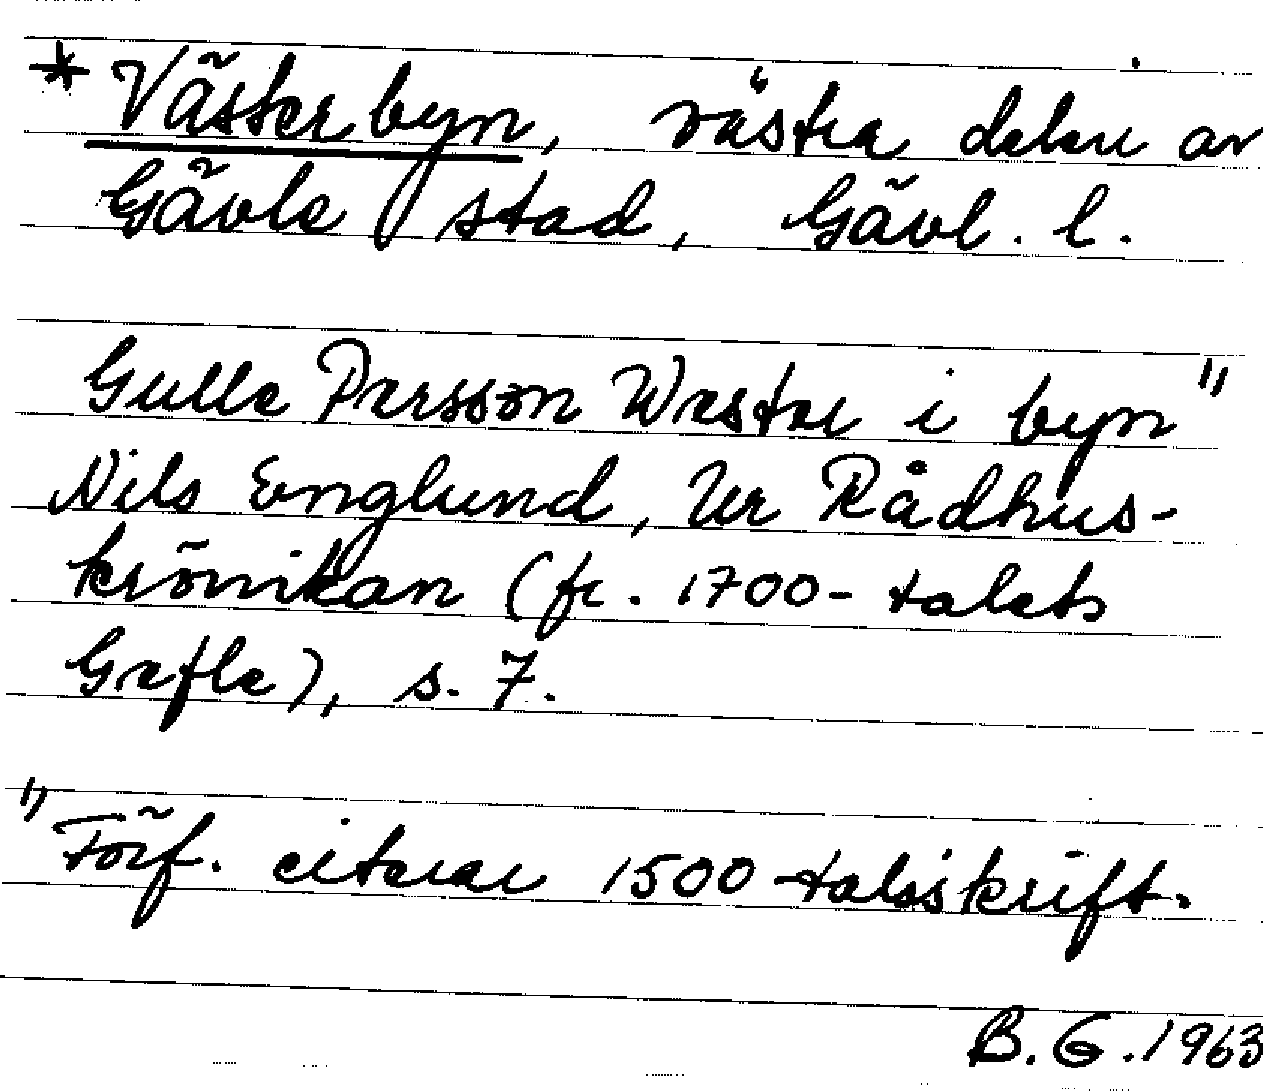 * Västerbyn, västra delen av
Gävle stad, Gävl. l.
Gulle Persson Wester i byn"
Nils Englund, Ur Rådhus-
krönikan (fr. 1700-talets
Gefle), s. 7.
" Förf. citerar 1500-talsskrift.
B. G. 1963